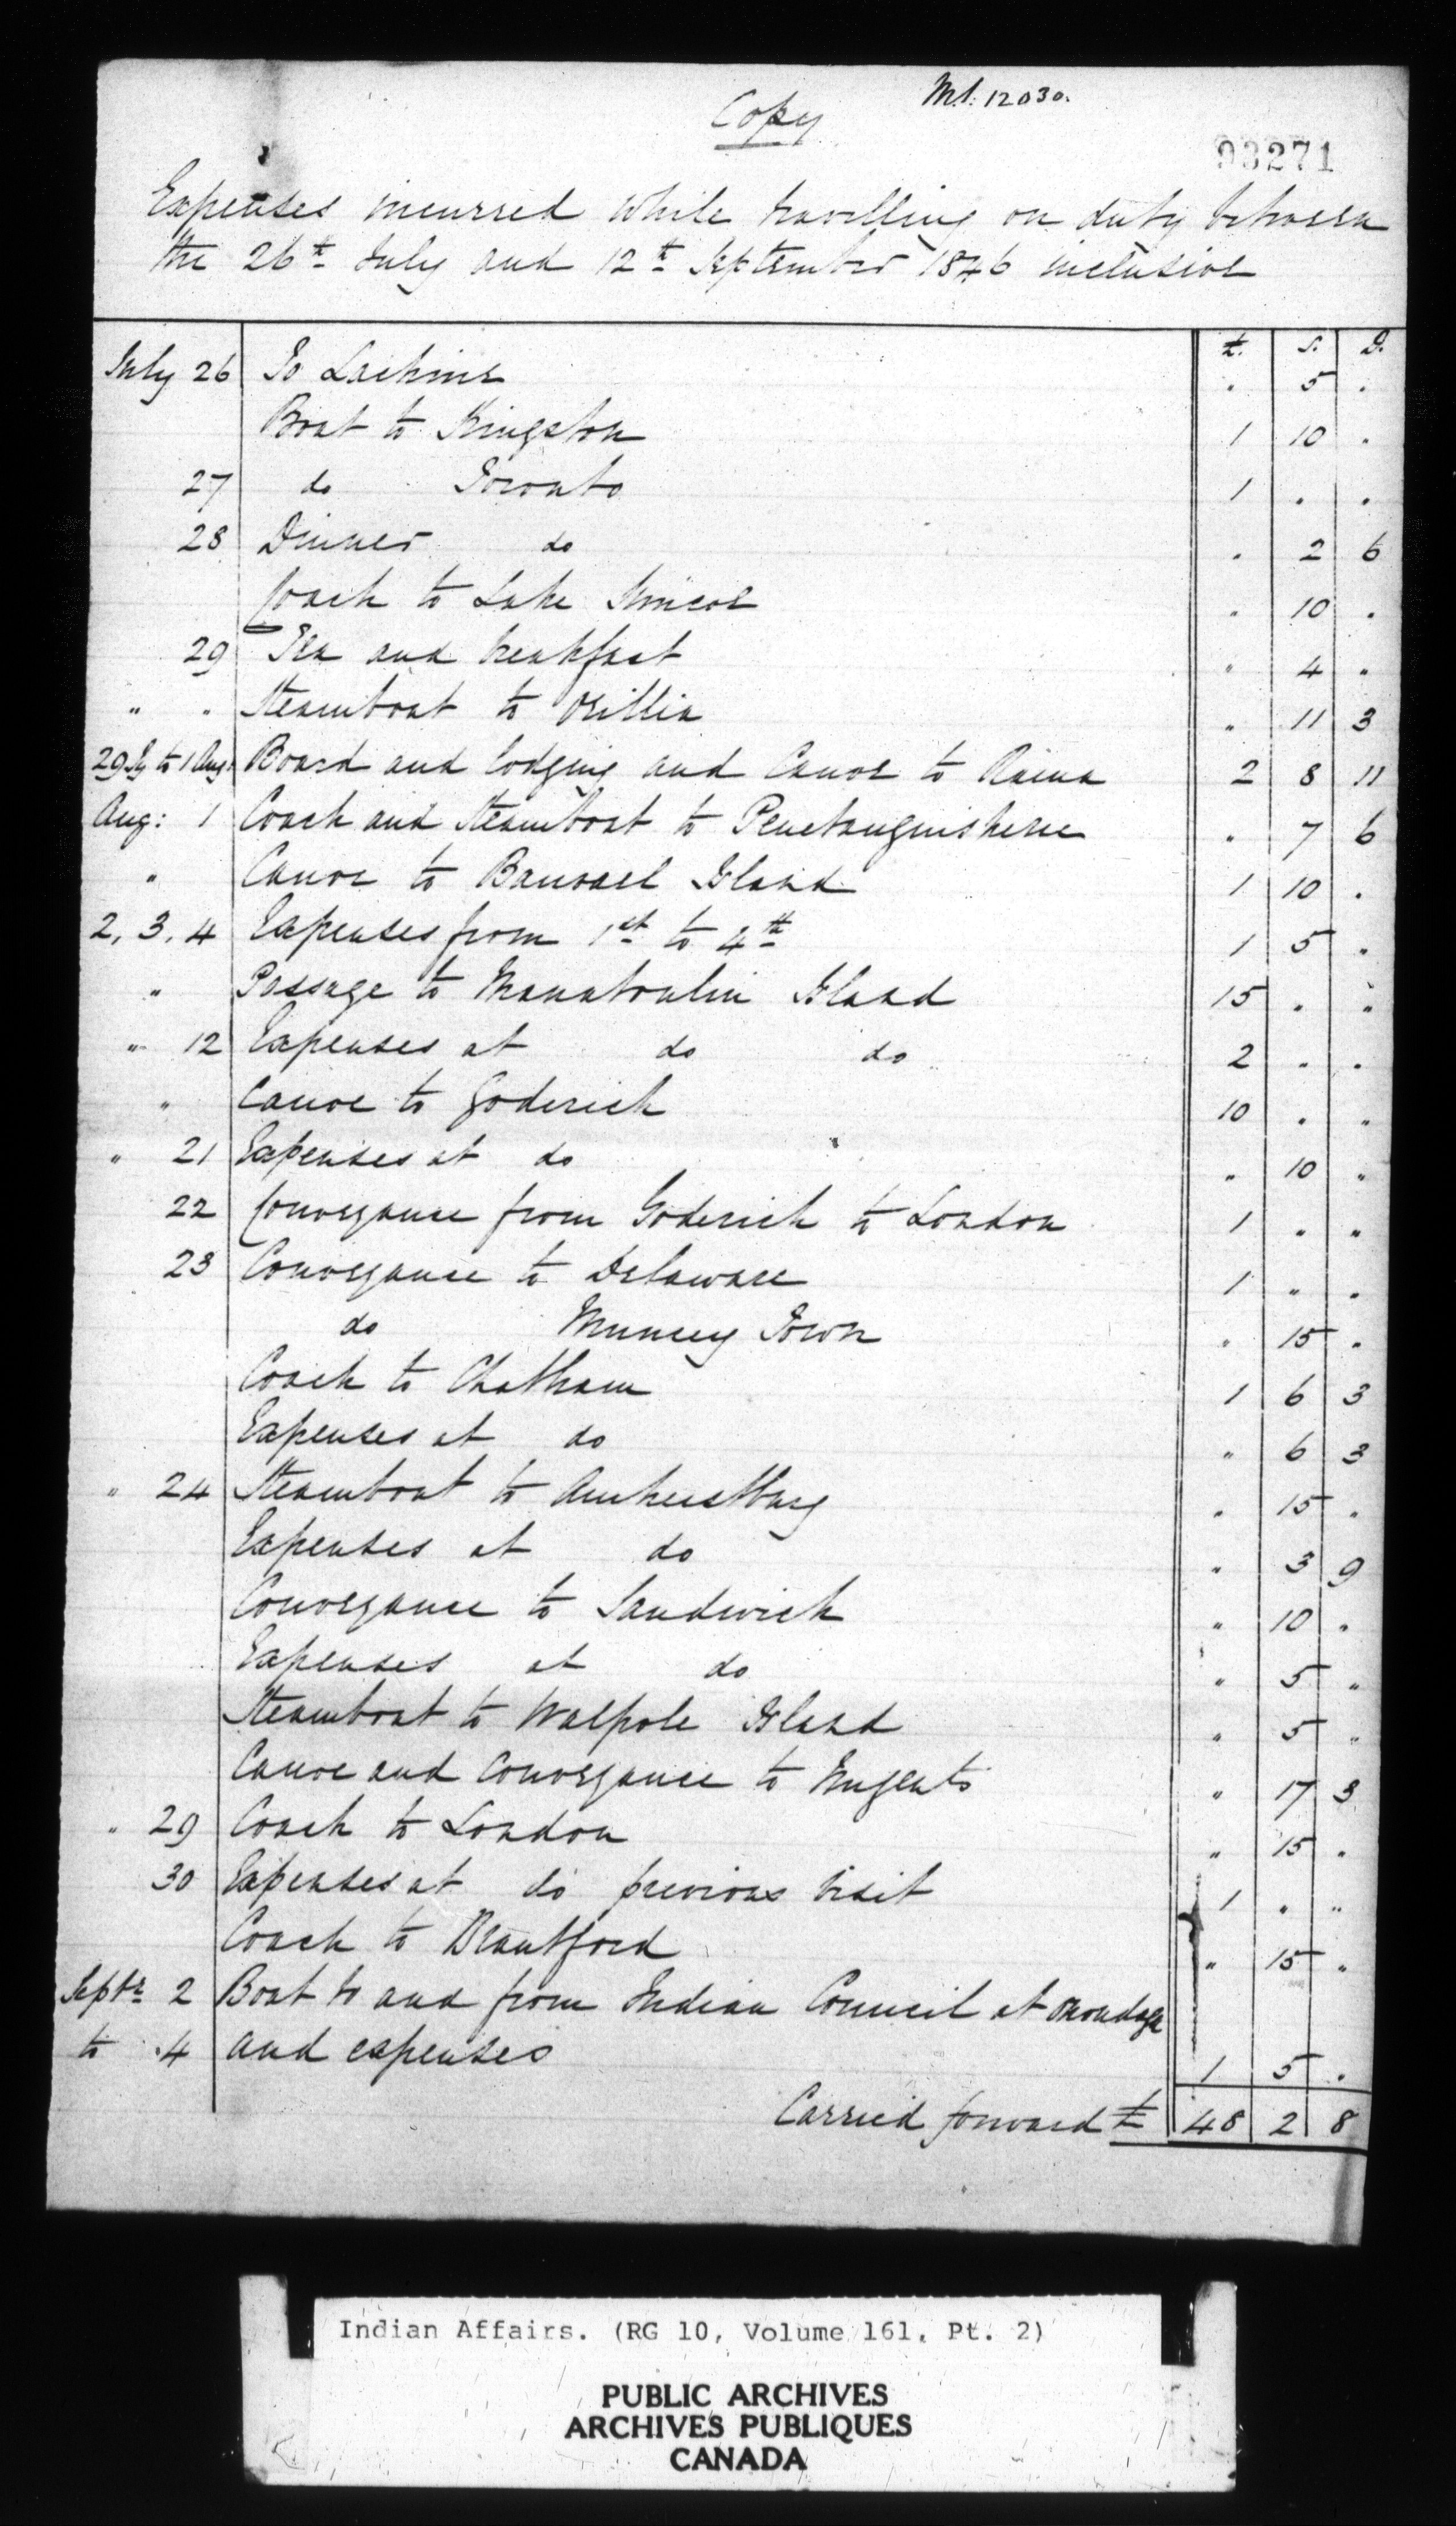 Copy
M.I. 12030.
93271
Expenses incurred while travelling on duty between
the 26th July and 12th September 1846 inclusive
£. S. D.
July 26 To Lachine " 5 "
Boat to Kingston 1 10 "
27 do Toronto 1 " "
28 Dinner do " 2 6
Coach to Lake Simcoe " 10 "
29 Tea and breakfast " 4 "
" " Steamboat to Orillia " 11 3
29 Jy to 1 Aug: Board and lodging and Canoe to Rama 2 8 11
Aug: 1 Coach and Steamboat to Penetanguishene " 7 6
" Canoe to Island 1 10 "
2, 3, 4 Expenses from 1st to 4th 1 5 "
" Passage to Manatoulin Island 15 " "
" 12 Expenses at do do 2 " "
" Canoe to Goderich 10 " "
" 21 Expenses at do " 10 "
22 Conveyance from Goderich to London 1 " "
23 Conveyance to Delaware 1 " "
do Muncey Town " 15 "
Coach to Chatham 1 6 3
Expenses at do " 6 3
" 24 Steamboat to Amherstburg " 15 "
Expenses at do " 3 9
Conveyance to Sandwich " 10 "
Expenses at do " 5 "
Steamboat to Walpole Island " 5 "
Canoe and Conveyance to Nugents " 17 3
" 29 Coach to London " 15 "
30 Expenses at do previous visit 1 " "
Coach to Brantford " 15 "
Septr 2 Boat to and from Indian Council at Onondaga
to 4 and expenses 1 5 "
Carried forward £ 48 2 8
Indian Affairs. (RG 10, Volume 161, Pt. 2)
PUBLIC ARCHIVES
ARCHIVES PUBLIQUES
CANADA